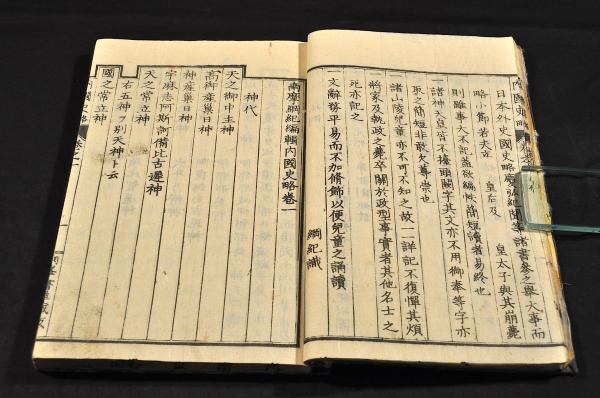 日本外史國史略慶弘紀聞等諸書參之舉大事而
略小節若夫立 皇后及 皇太子與其崩薨
則雖事大不記蓋欲編帙簡短讀者易終也
一諸神天皇皆不擡頭闕字其文亦不用御奉等字亦
要之簡短非敢欠尊崇也
諸山陵兒童亦不可不知之故一一詳記不復憚其煩
將家及執政之薨卒關於政型事實者其他名士之
死亦記之
文辭務平易而不加脩飾以便兒童之誦讀
綱紀識
南摩綱紀編輯內國史略卷一
神代
天之御中主神
高御產巢日神
神產巢日神
宇麻志阿斯訶備比古遲神
天之常立神
右五神ヲ別天神ト云
國之常立神
內國史略 卷之一